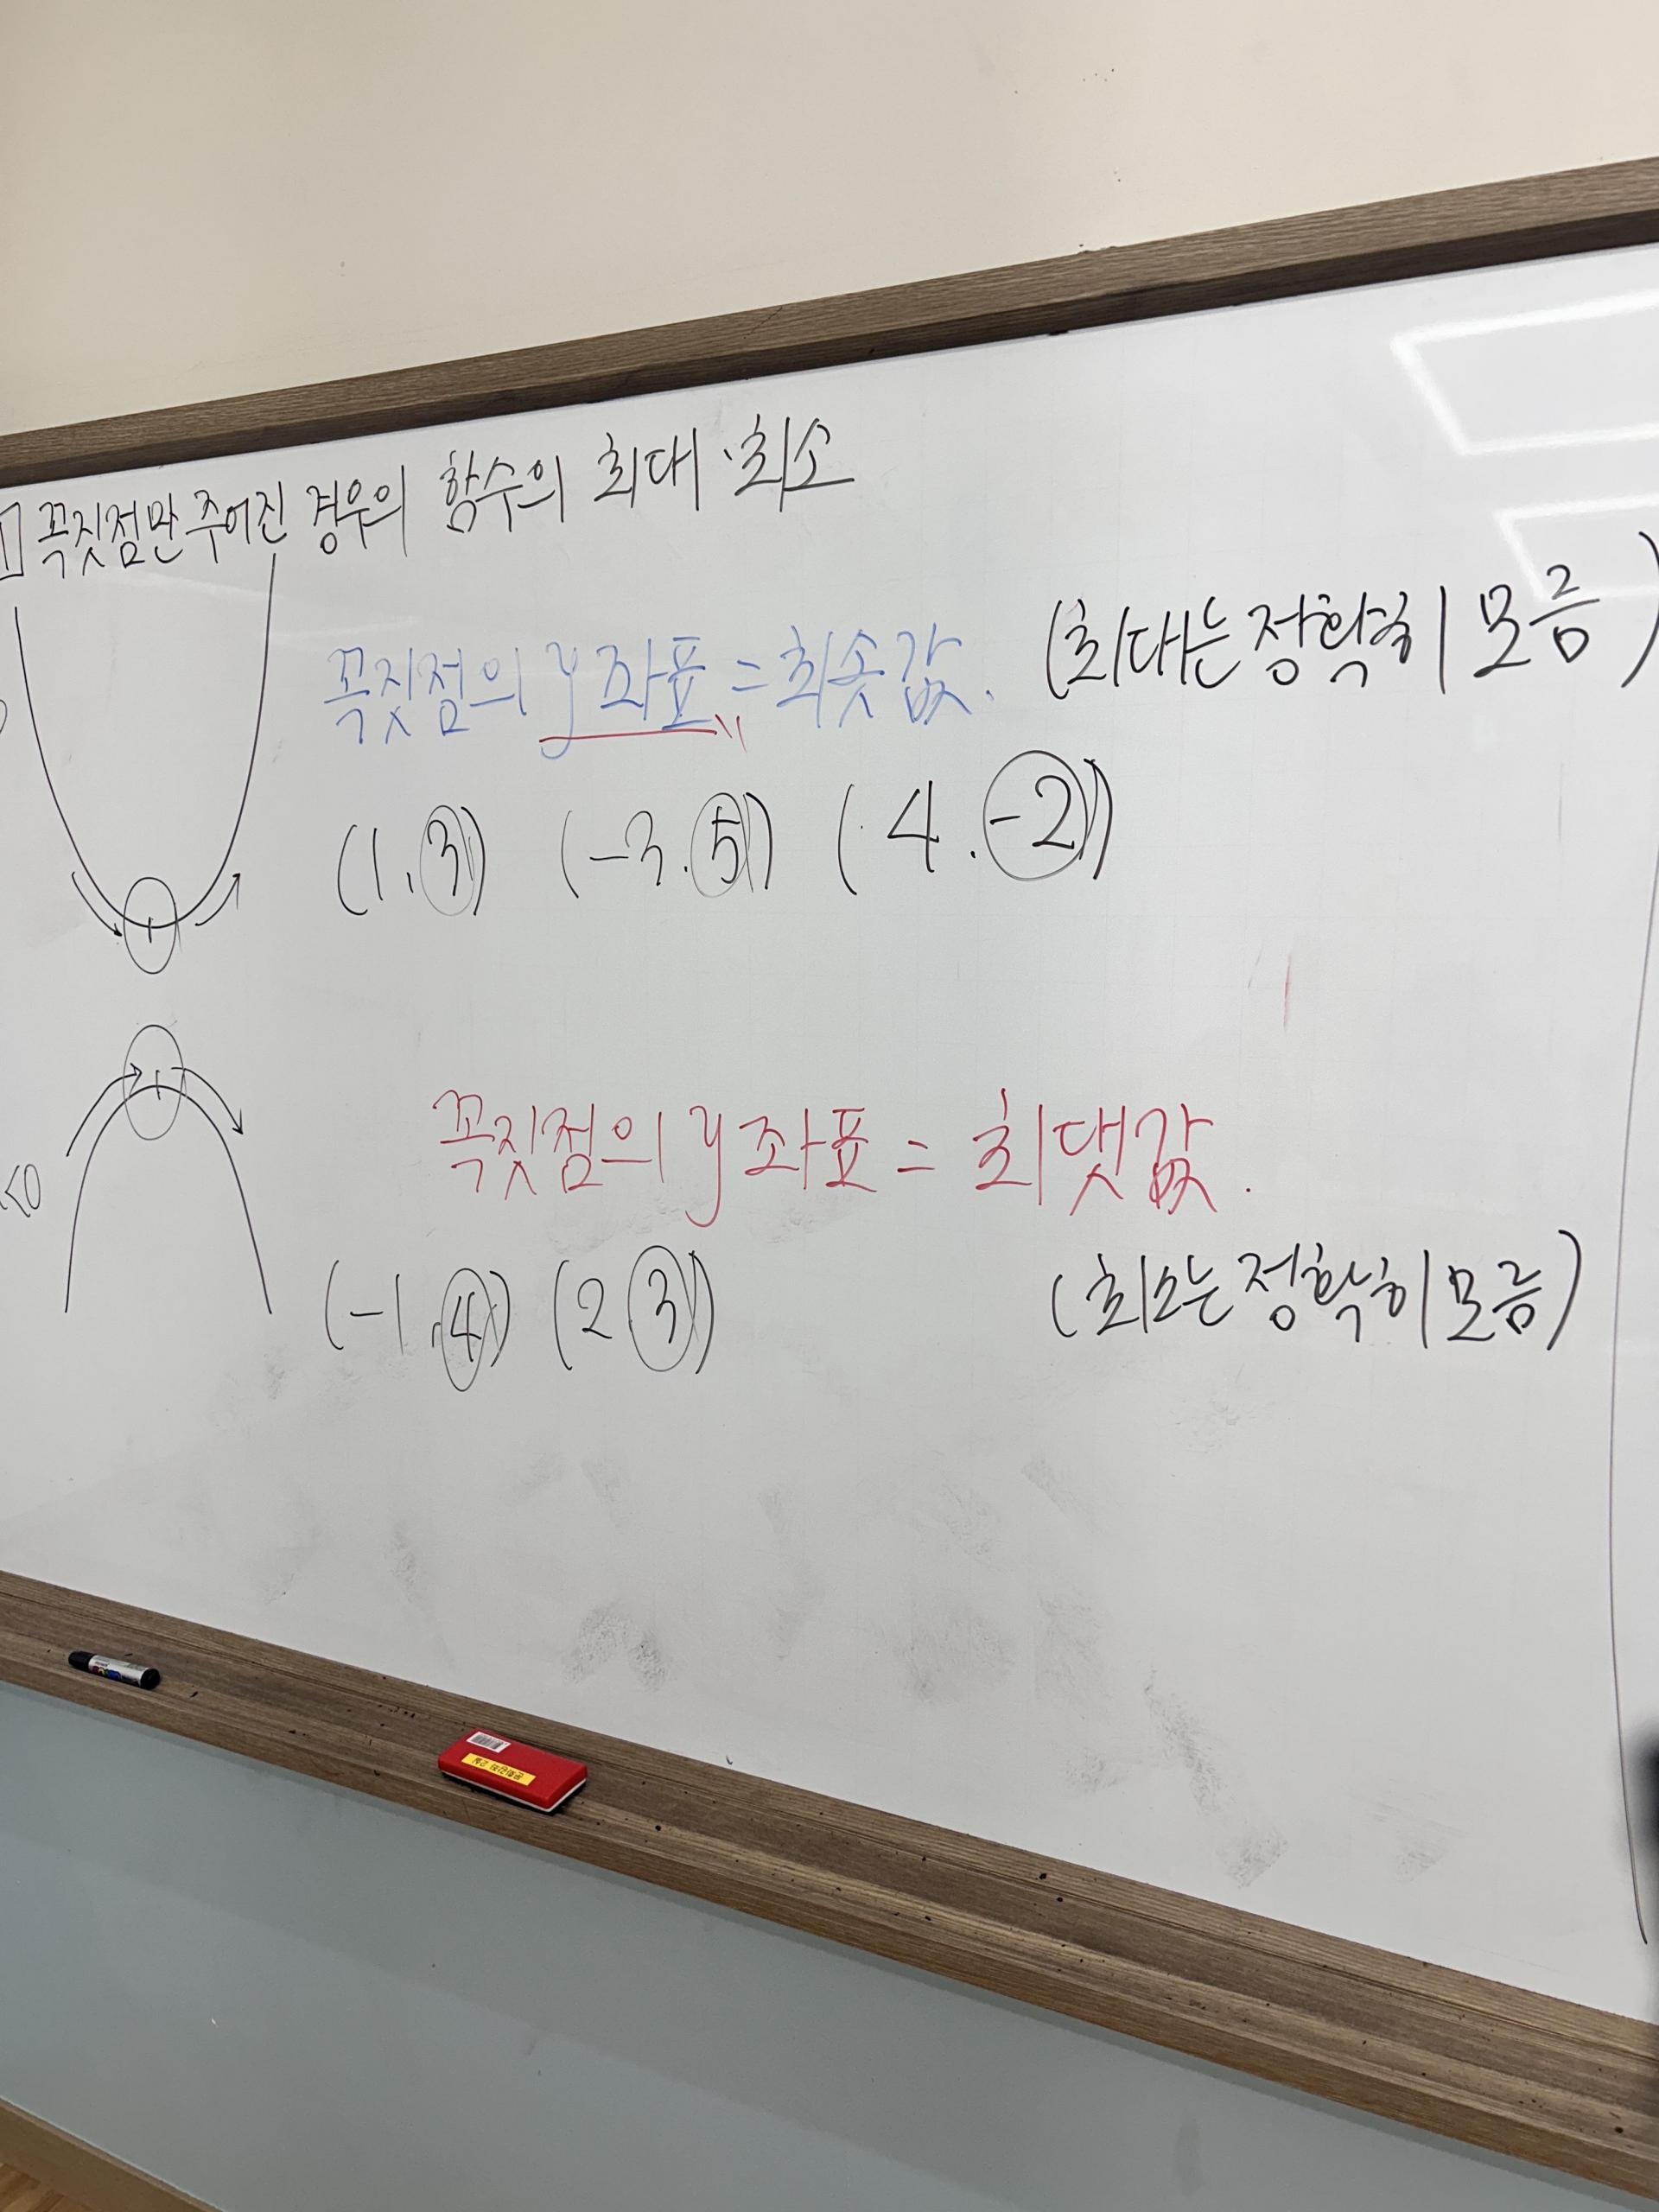 1 꼭짓점만 주어진 경우의 함수의 최대·최소
꼭짓점의 y좌표 = 최솟값. (최대는 정확히 모름)
(1, 3) (-3, 5) (4, -2)
꼭짓점의 y좌표 = 최댓값.
<0
(-1, 4) (2 3) (최소는 정확히 모름)